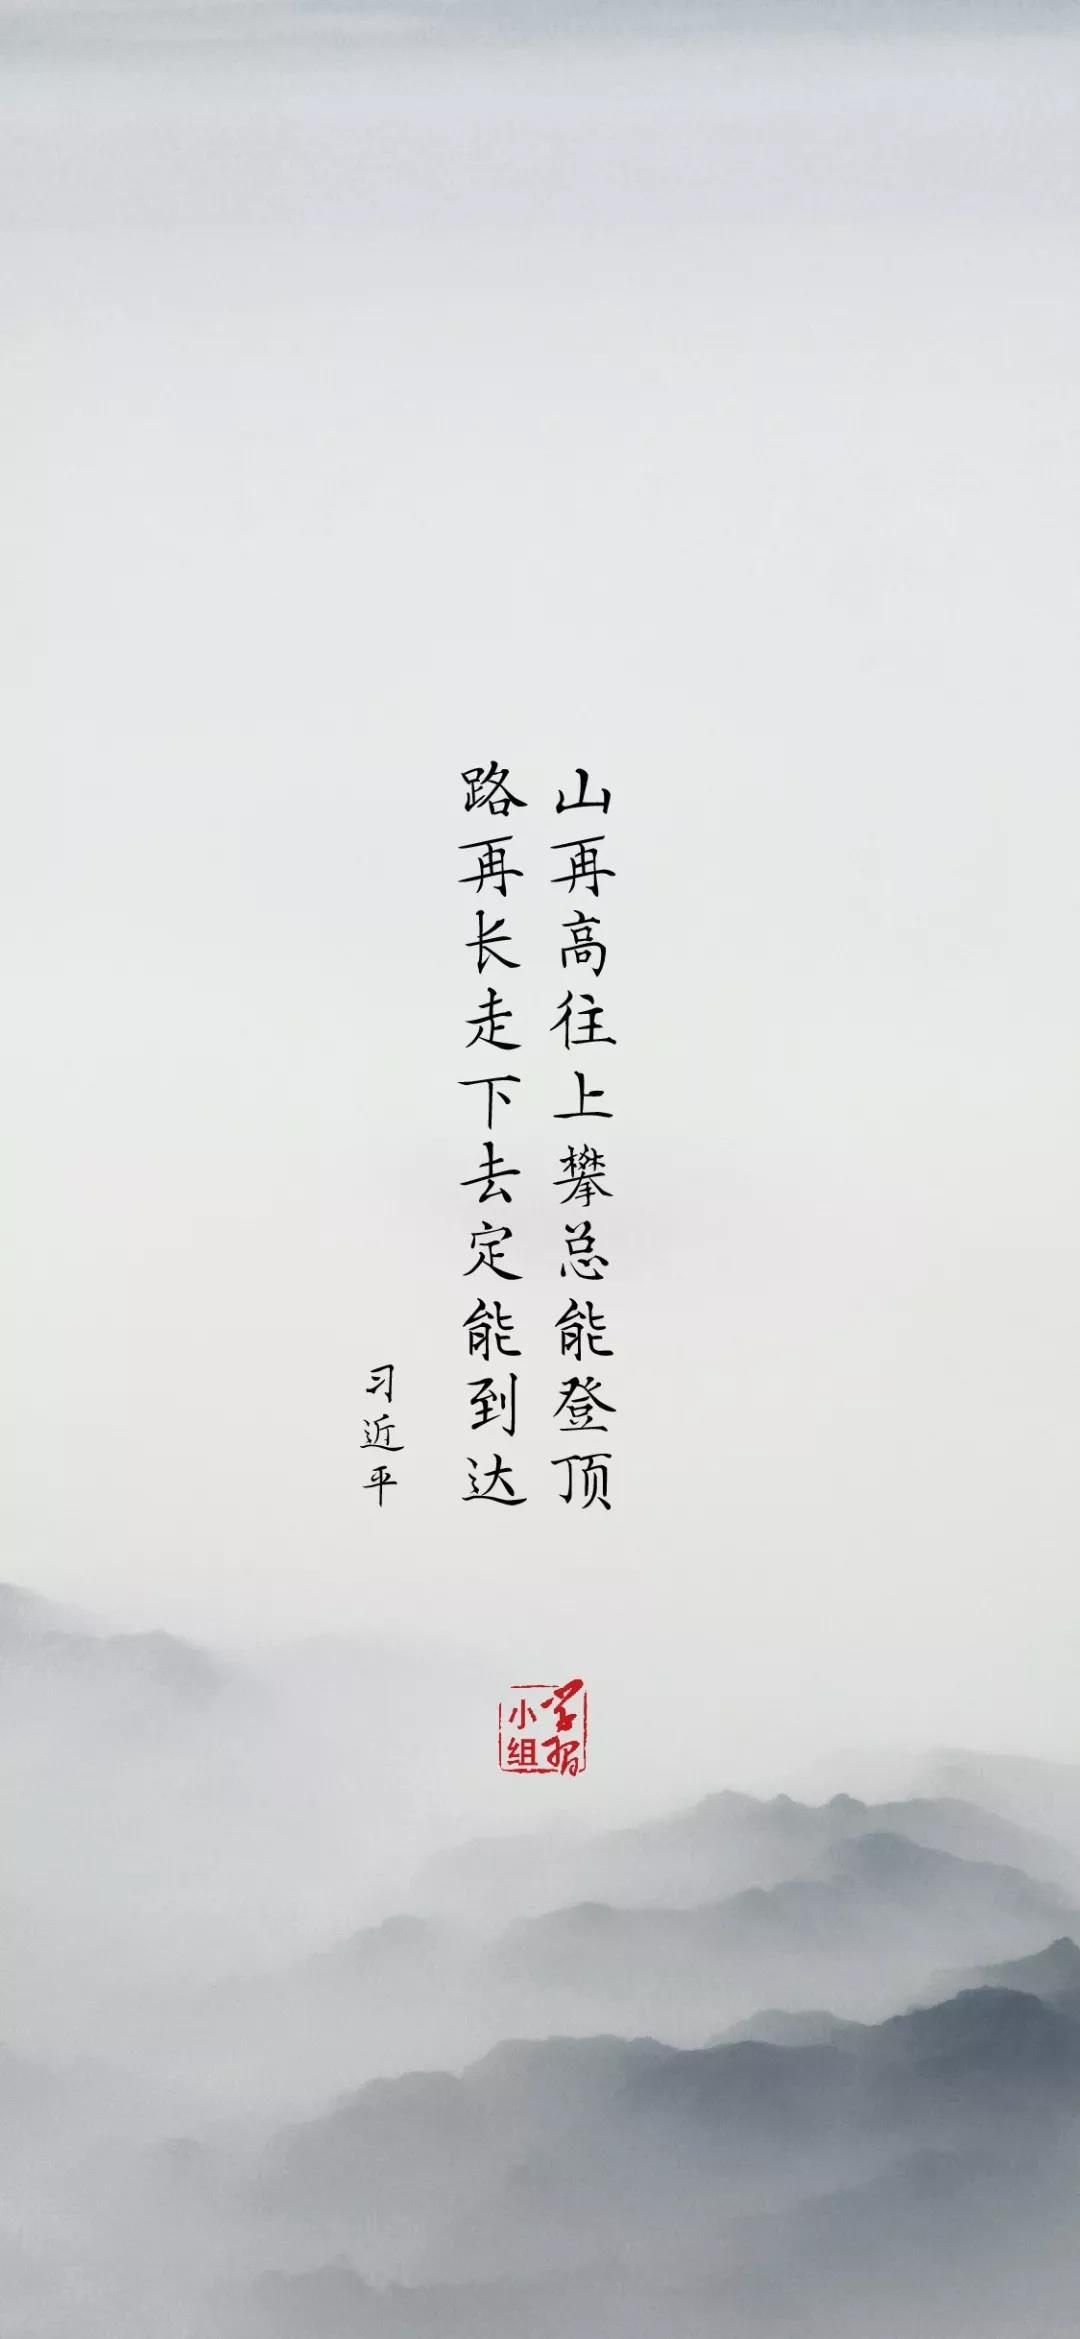 山再高往上攀总能登顶
路再长走下去定能到达
习近平
学习
小组